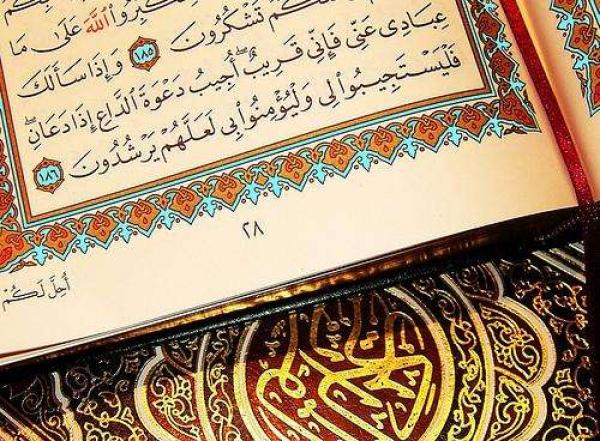 وَلِتُكَبِّرُوا۟ اللَّهَ عَلَىٰ مَا
هَدَىٰكُمْ تَشْكُرُونَ ١٨٥ وَإِذَا سَأَلَكَ
عِبَادِى عَنِّى فَإِنِّى قَرِيبٌ ۖ أُجِيبُ دَعْوَةَ الدَّاعِ إِذَا دَعَانِ ۖ
فَلْيَسْتَجِيبُوا۟ لِى وَلْيُؤْمِنُوا۟ بِى لَعَلَّهُمْ يَرْشُدُونَ ١٨٦
٢٨
أُحِلَّ لَكُمْ